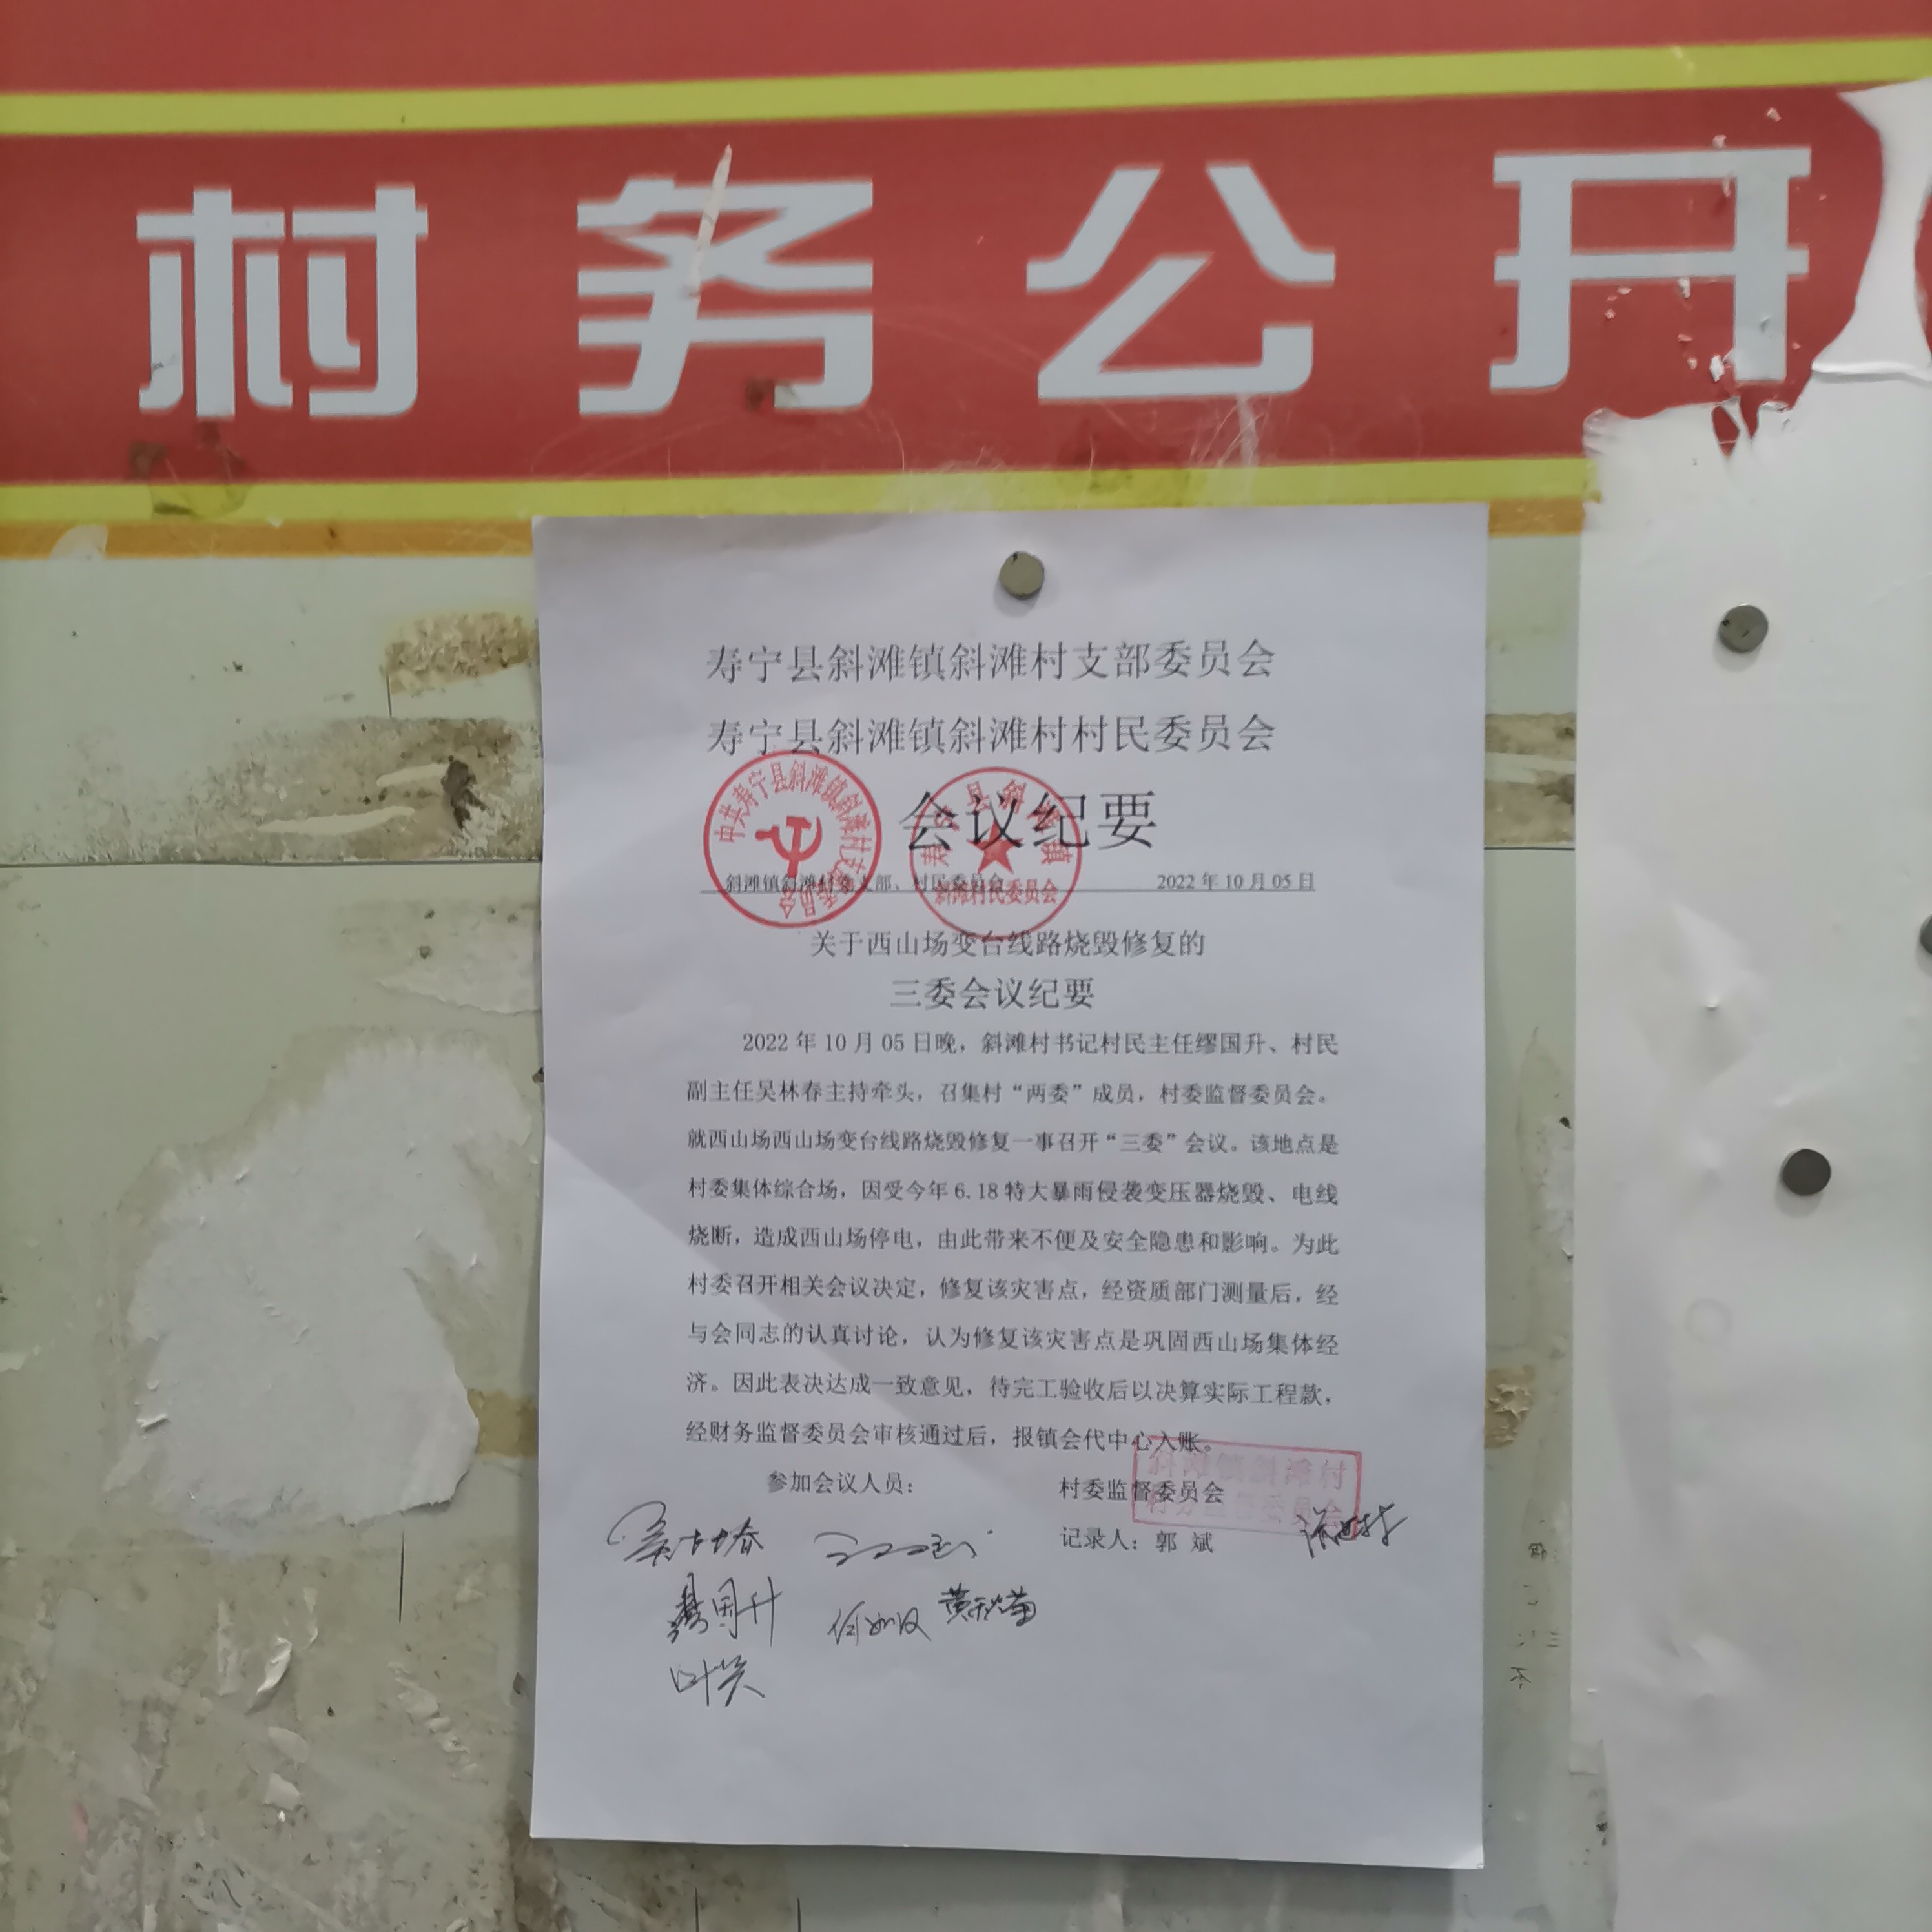 村务公开
寿宁县斜滩镇斜滩村支部委员会
寿宁县斜滩镇斜滩村村民委员会
会议纪要
中共寿宁县斜滩镇斜滩村支部委员会
寿宁县斜滩镇
斜滩村民委员会
斜滩镇斜滩村党支部、村民委员会 2022年10月05日
关于西山场变台线路烧毁修复的
三委会议纪要
2022年10月05日晚，斜滩村书记村民主任缪国升、村民
副主任吴林春主持牵头，召集村“两委”成员，村委监督委员会。
就西山场西山场变台线路烧毁修复一事召开“三委”会议。该地点是
村委集体综合场，因受今年6.18特大暴雨侵袭变压器烧毁、电线
烧断，造成西山场停电，由此带来不便及安全隐患和影响。为此
村委召开相关会议决定，修复该灾害点，经资质部门测量后，经
与会同志的认真讨论，认为修复该灾害点是巩固西山场集体经
济。因此表决达成一致意见，待完工验收后以决算实际工程款，
经财务监督委员会审核通过后，报镇会代中心入账。
参加会议人员： 村委监督委员会
斜滩镇斜滩村
村务监督委员会
记录人：郭 斌
吴林春
缪国升 黄秋菊
叶笑